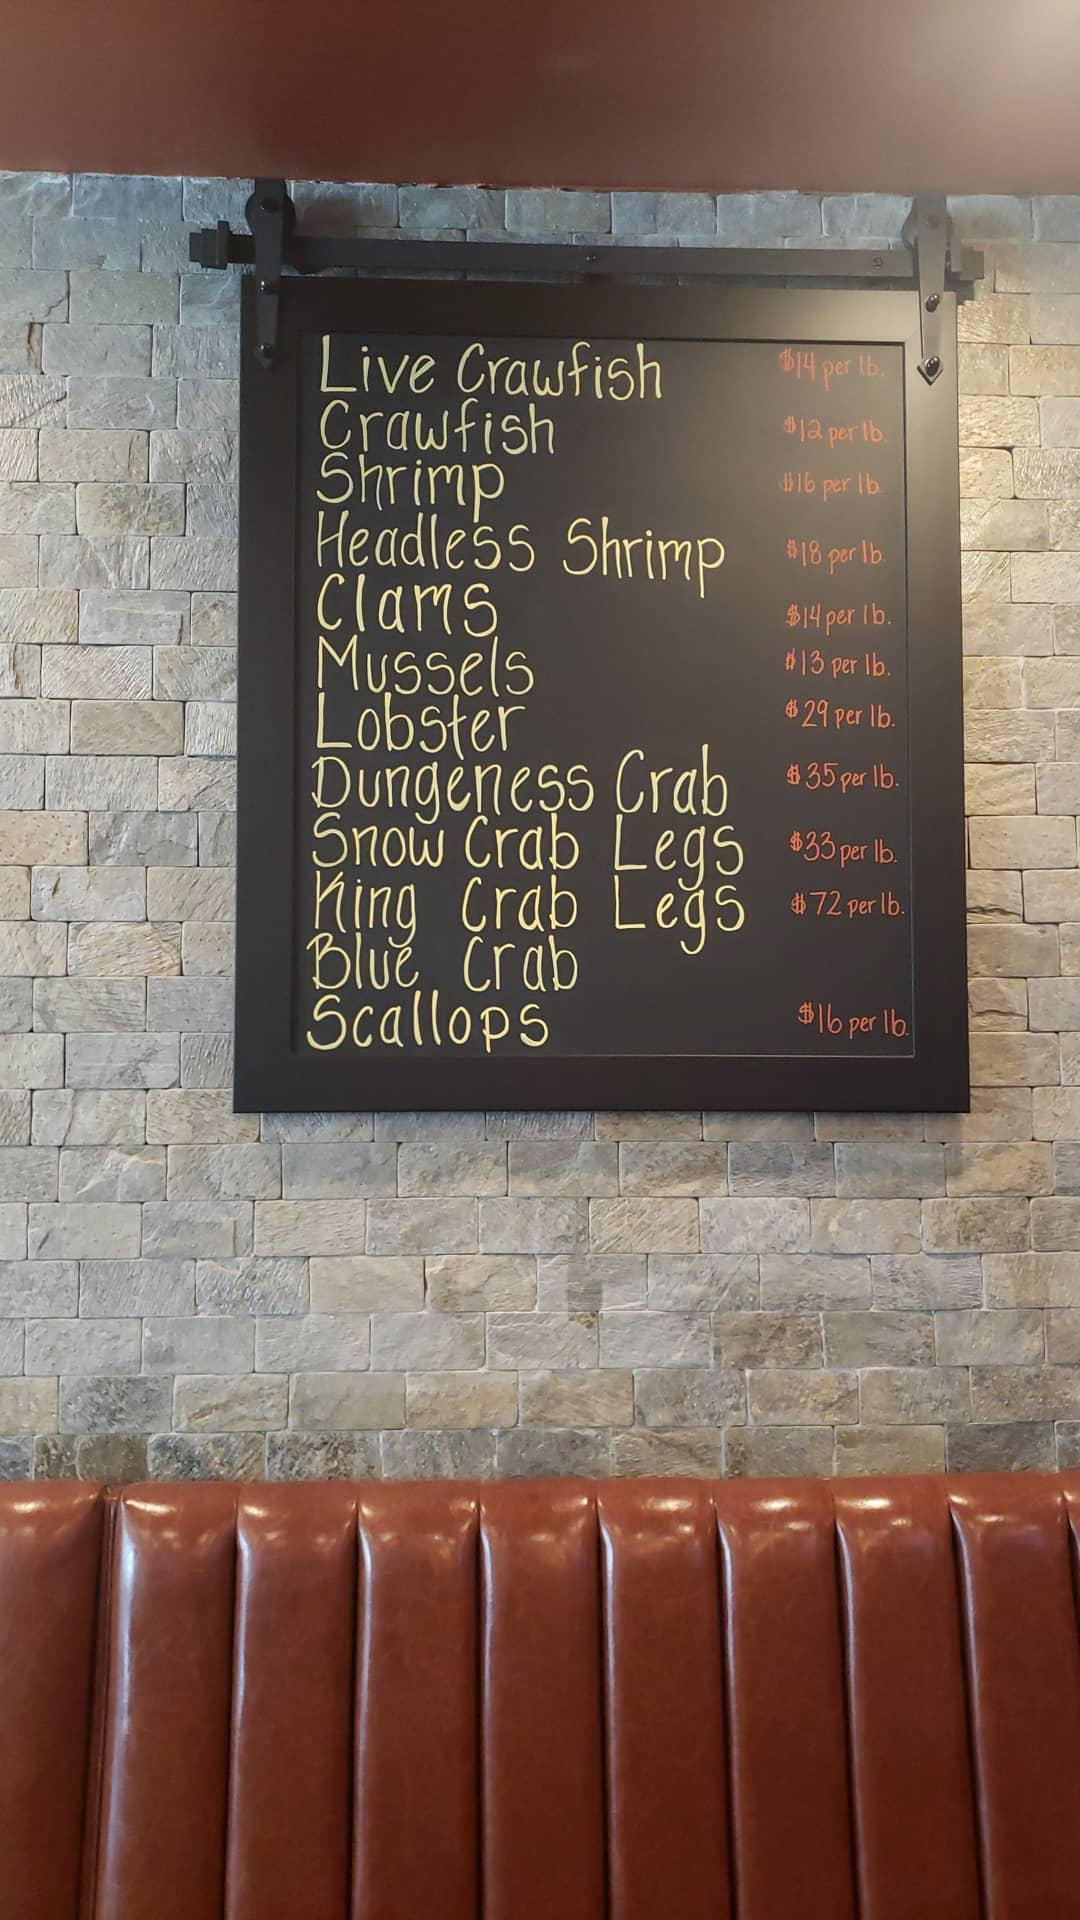 Live Crawfish $14 per lb.
Crawfish $12 per lb.
Shrimp $16 per lb.
Headless Shrimp $18 per lb.
Clams $14 per lb.
Mussels $13 per lb.
Lobster $29 per lb.
Dungeness Crab $35 per lb.
Snow Crab Legs $33 per lb.
King Crab Legs $72 per lb.
Blue Crab
Scallops $16 per lb.